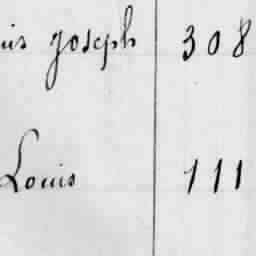 uis joseph 308
Louis 111